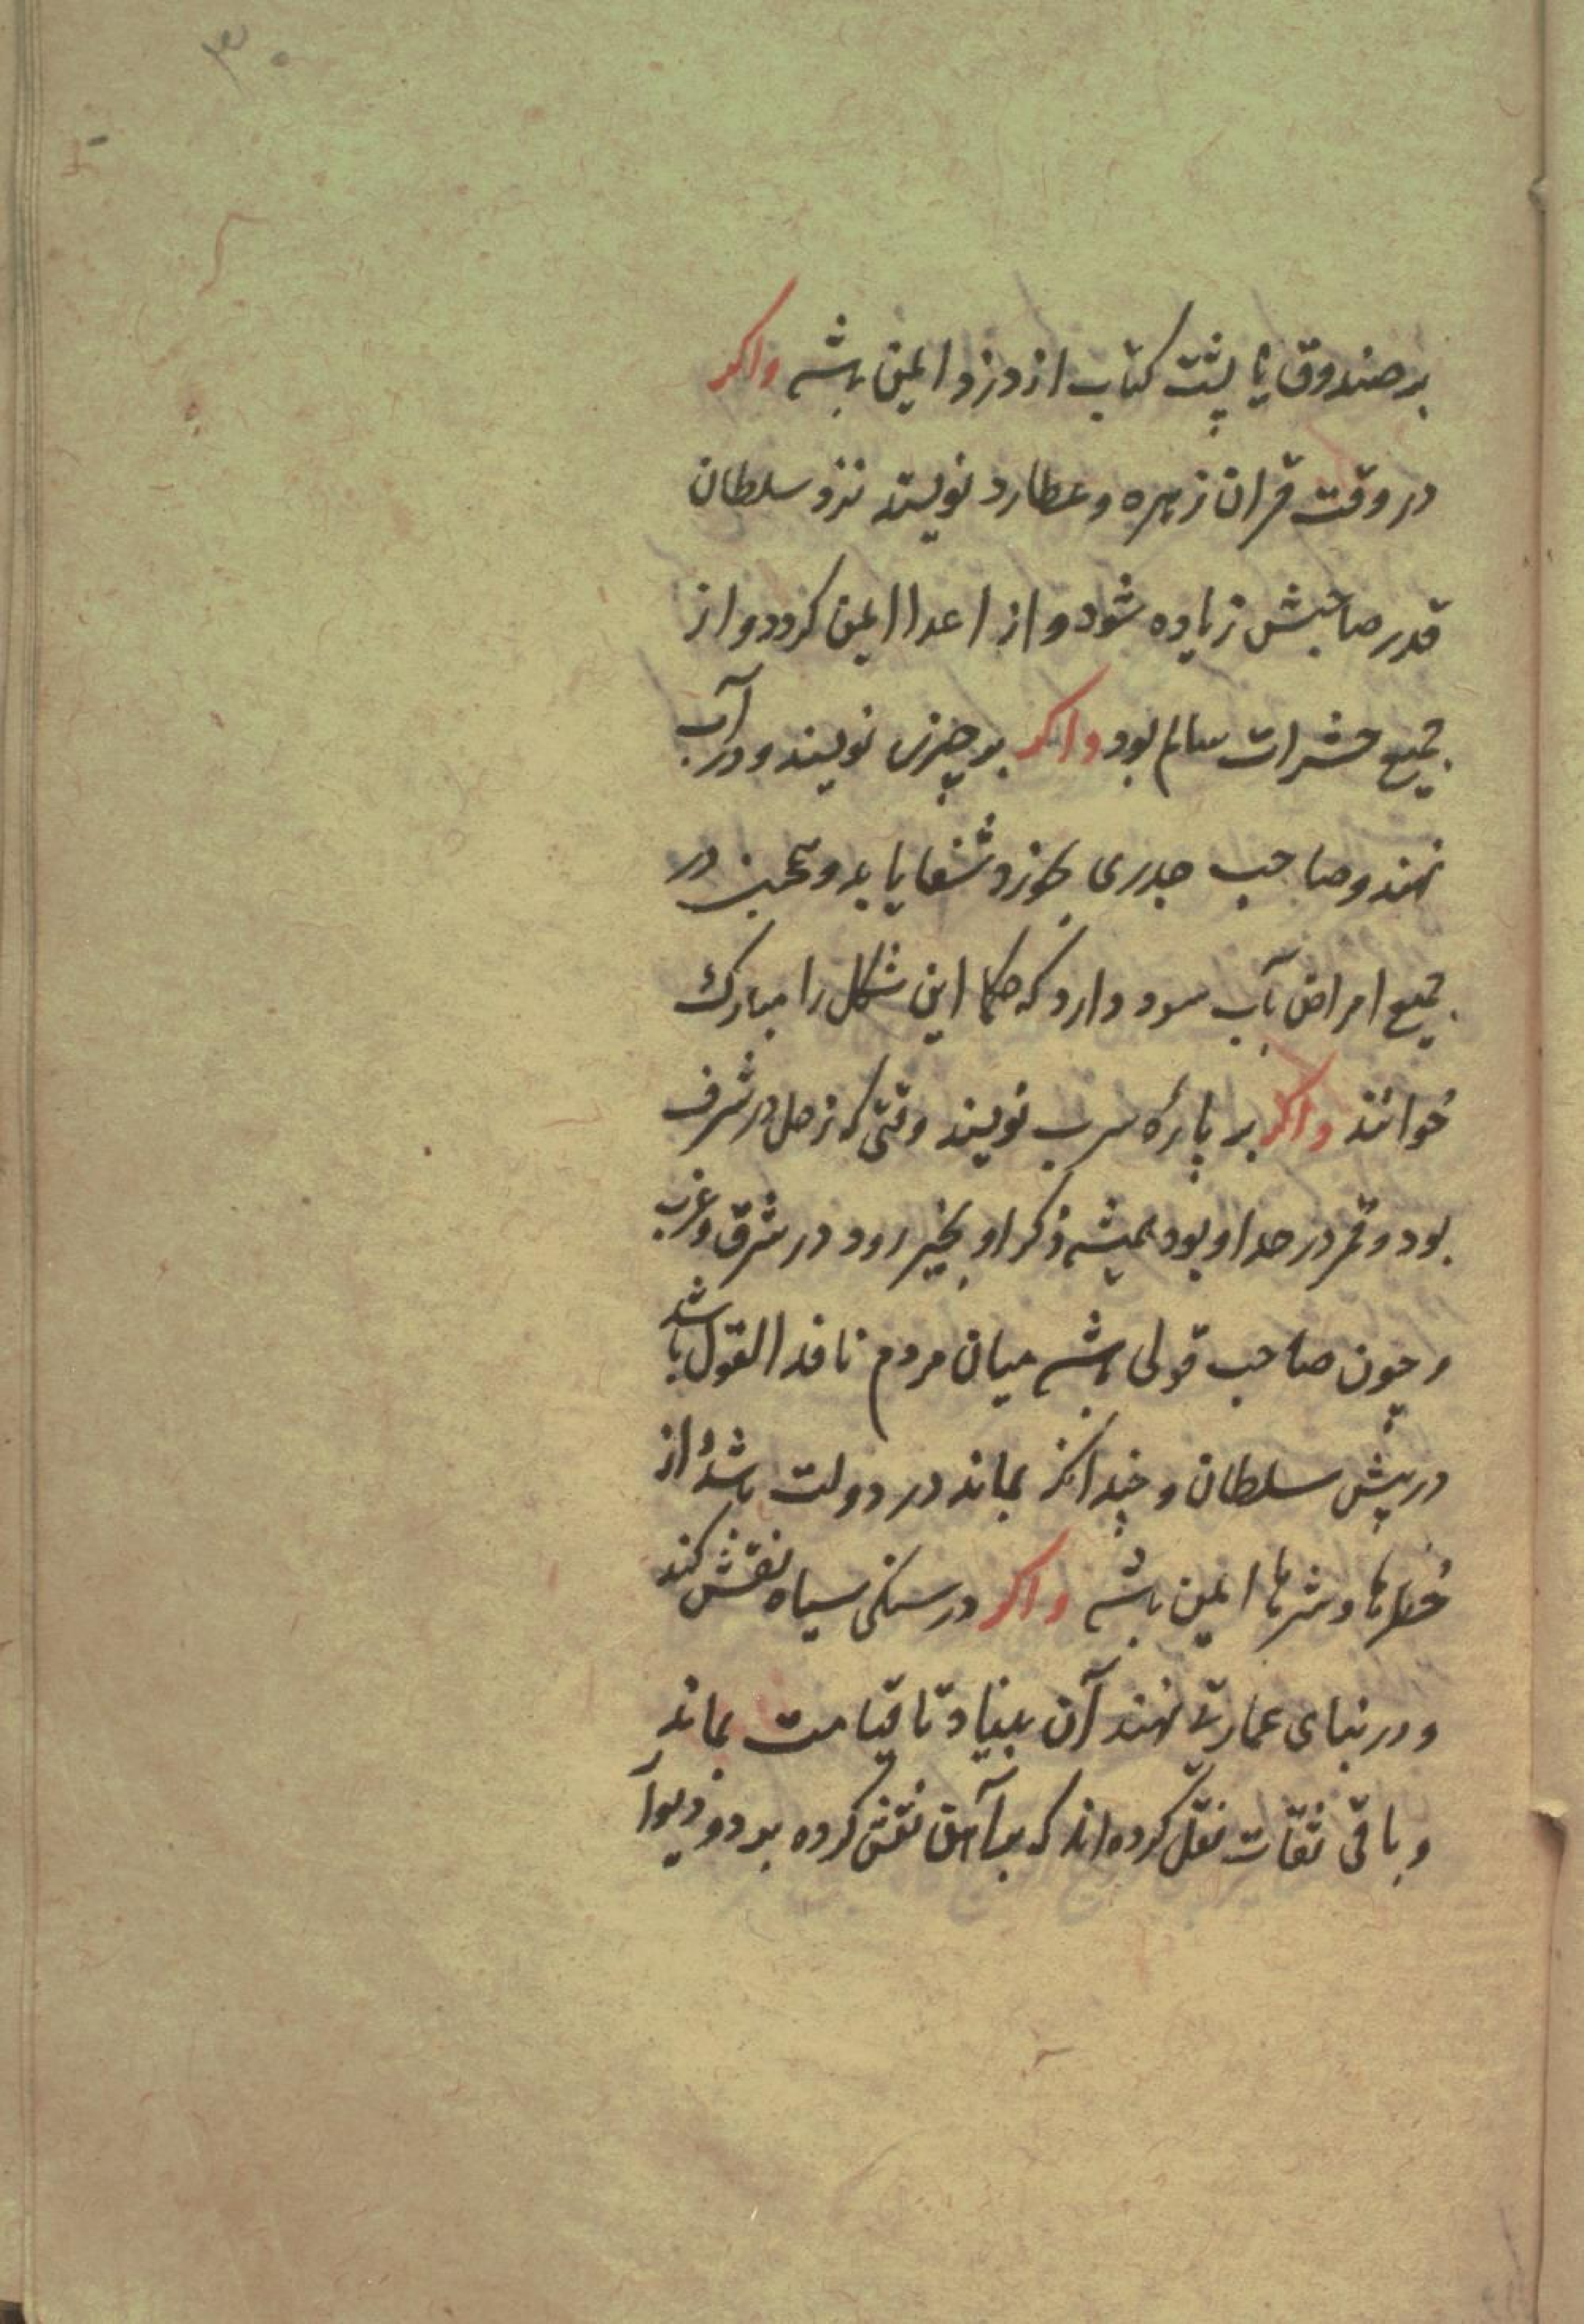 ۳۰
بر صندوق یا پشت کتاب از دزد ایمن باشد واکر
در وقت قران زهره و عطارد نویسند نزد سلطان
قدر صاحبش زیاده شود و از اعدا ایمن کردد و از
جمیع حشرات سالم بود واکر بر چیزی نویسند و در آب
نهند و صاحب جدری بخورد شفا یابد و همچنین در
جمیع امراض آب سود دارد که حکما این شکل را مبارک
خوانند واکر بر پارهٔ سرب نویسند وقتی که زحل در شرف
بود و قمر در حد او بود همیشه ذکر او بخیر رود در شرق و غرب
و چون صاحب قولی باشد میان مردم نافد القول باشد
در پیش سلطان و چندانکه بماند در دولت باشد و از
خطرها و شرها ایمن باشد واکر در سنکی سیاه نقش کند
و در بنای عمارتی نهند آن بنیاد تا قیامت بماند
و باقی ثقات نقل کرده‌اند که بآهن نقش کرده بر دو دیوار